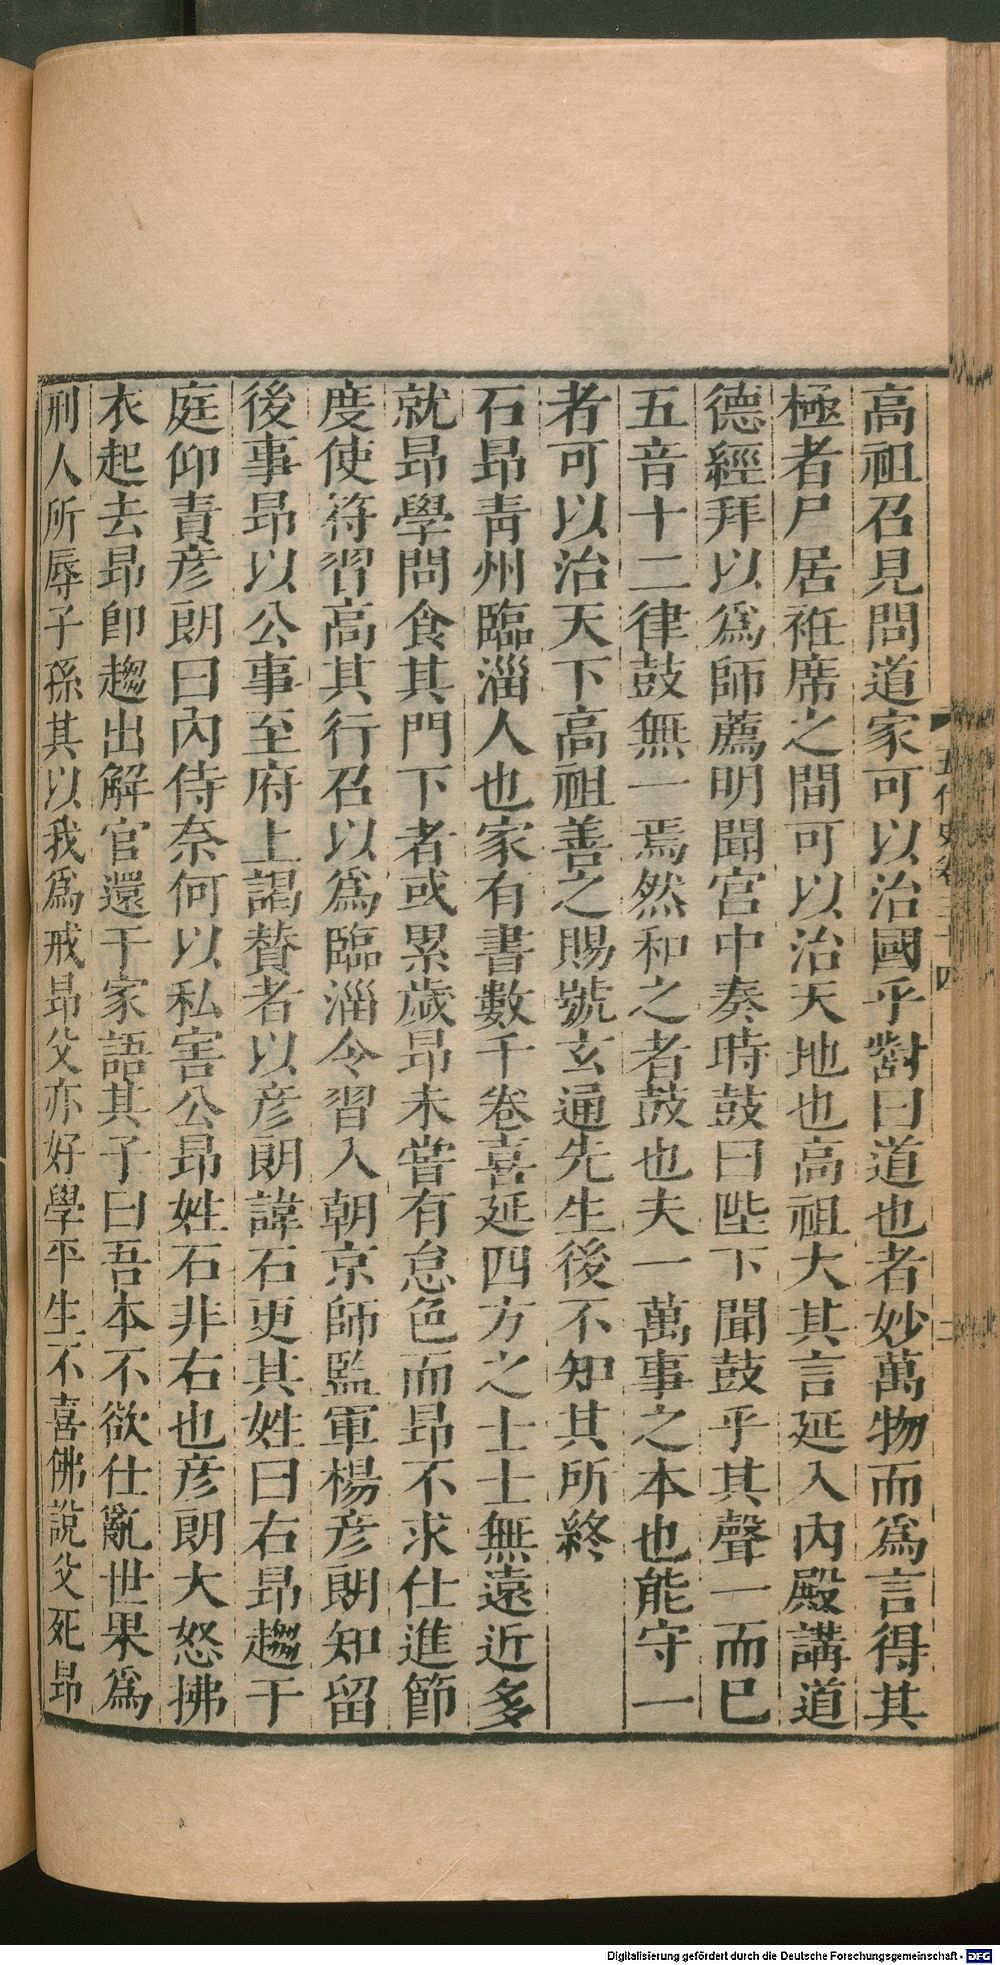 高祖召見問道家可以治國乎對曰道也者妙萬物而爲言得其
極者尸居袵席之間可以治天地也高祖大其言延入內殿講道
德經拜以爲師薦明聞宮中奏時鼓曰陛下聞鼓乎其聲一而巳
五音十二律鼓無一焉然和之者鼓也夫一萬事之本也能守一
者可以治天下高祖善之賜號玄通先生後不知其所終
石昻靑州臨淄人也家有書數千卷喜延四方之士士無遠近多
就昻學問食其門下者或累歲昻未嘗有怠色而昻不求仕進節
度使符習高其行召以爲臨淄令習入朝京師監軍楊彦朗知留
後事昻以公事至府上謁贊者以彦朗諱石更其姓曰右昻趨于
庭仰責彦朗曰內侍奈何以私害公昻姓石非右也彦朗大怒拂
衣起去昻卽趨出解官還于家語其子曰吾本不欲仕亂世果爲
刑人所辱子孫其以我爲戒昻父亦好學平生不喜佛說父死昻
五代史卷三十四
二
Digitalisierung gefördert durch die Deutsche Forschungsgemeinschaft - DFG